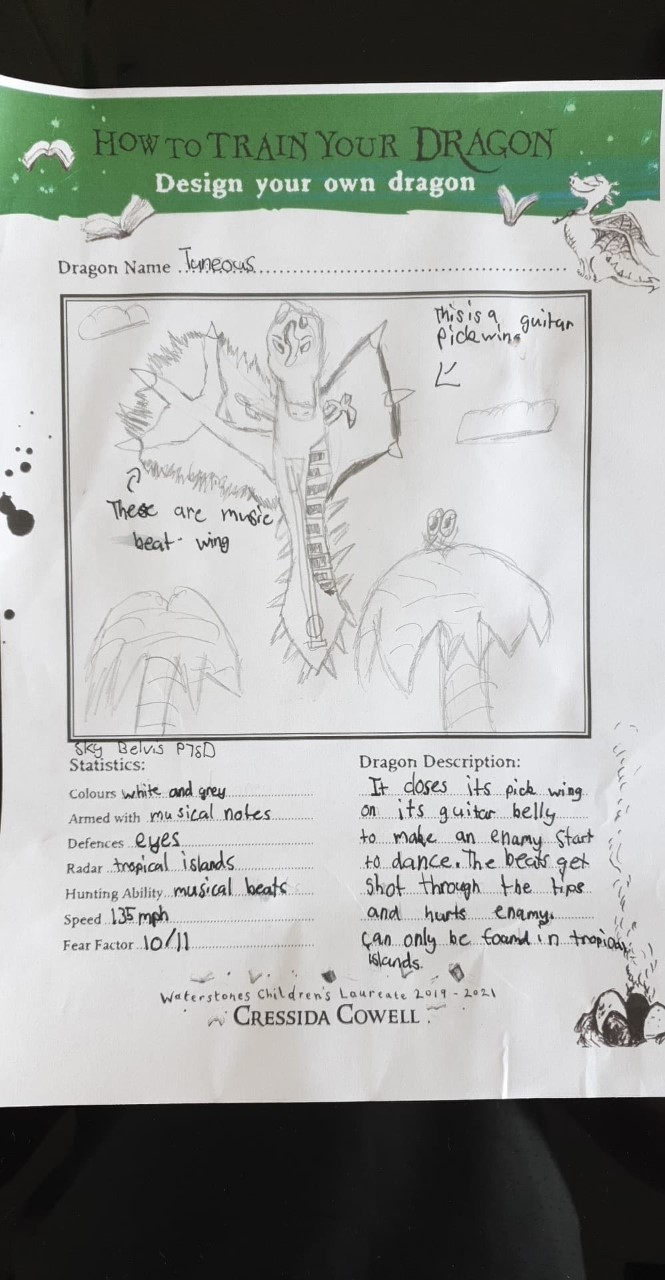 HOW TO TRAIN YOUR DRAGON
Design your own dragon
Dragon Name Tuneous
This is a guitar
pick wing
These are music
beat- wing
Sky Belvis P7SD
Statistics:
Colours white and grey
Armed with musical notes
Defences eyes
Radar tropical islands
Hunting Ability musical beats
Speed 135 mph
Fear Factor 10/11
Dragon Description:
It closes its pick wing
on its guitar belly
to make an enamy start
to dance. The beats get
shot through the tips
and hurts enamy.
Can only be found in tropical
islands.
Waterstones Children's Laureate 2019-2021
CRESSIDA COWELL